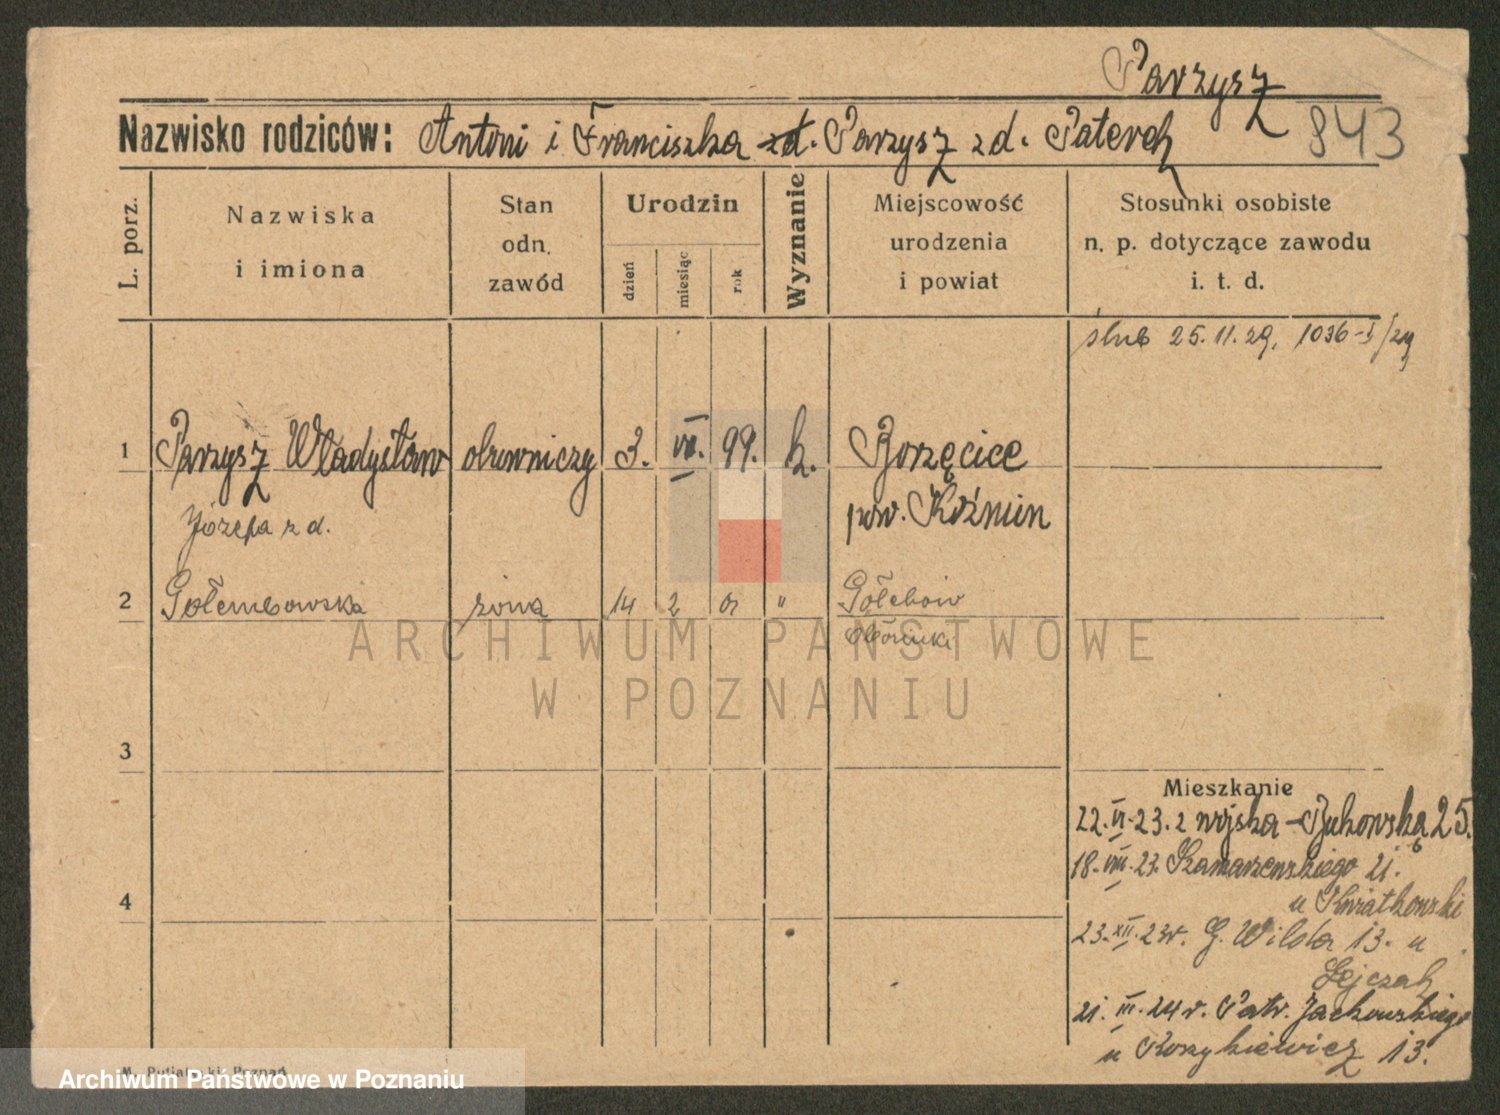 Parzysz
Nazwisko rodziców: Antoni i Franciszka zd. Parzysz zd. Paterek 843
L. porz.
Nazwiska
i imiona
Stan
odn.
zawód
Urodzin
dzień
miesiąc
rok
Wyznanie
Miejscowość
urodzenia
i powiat
Stosunki osobiste
n. p. dotyczące zawodu
i. t. d.
ślub 25.11.29. 1036-I/29
1 Parzysz Władysław 3. VI. 99. k. Borzęcice
pow. Koźmin
Józefa z d.
2 Gołembowska żona 14 2 01 " Gołębow
3
4
Mieszkanie
22.VI.23. z wojska - Bukowska 25.
18.VIII.23. 21.
u Kwiatkowski
23.XII.23r. G. Wilda 13. u
21. III. 24r. Patr. Jackowskiego
u 13.
ARCHIWUM PAŃSTWOWE
W POZNANIU
Archiwum Państwowe w Poznaniu